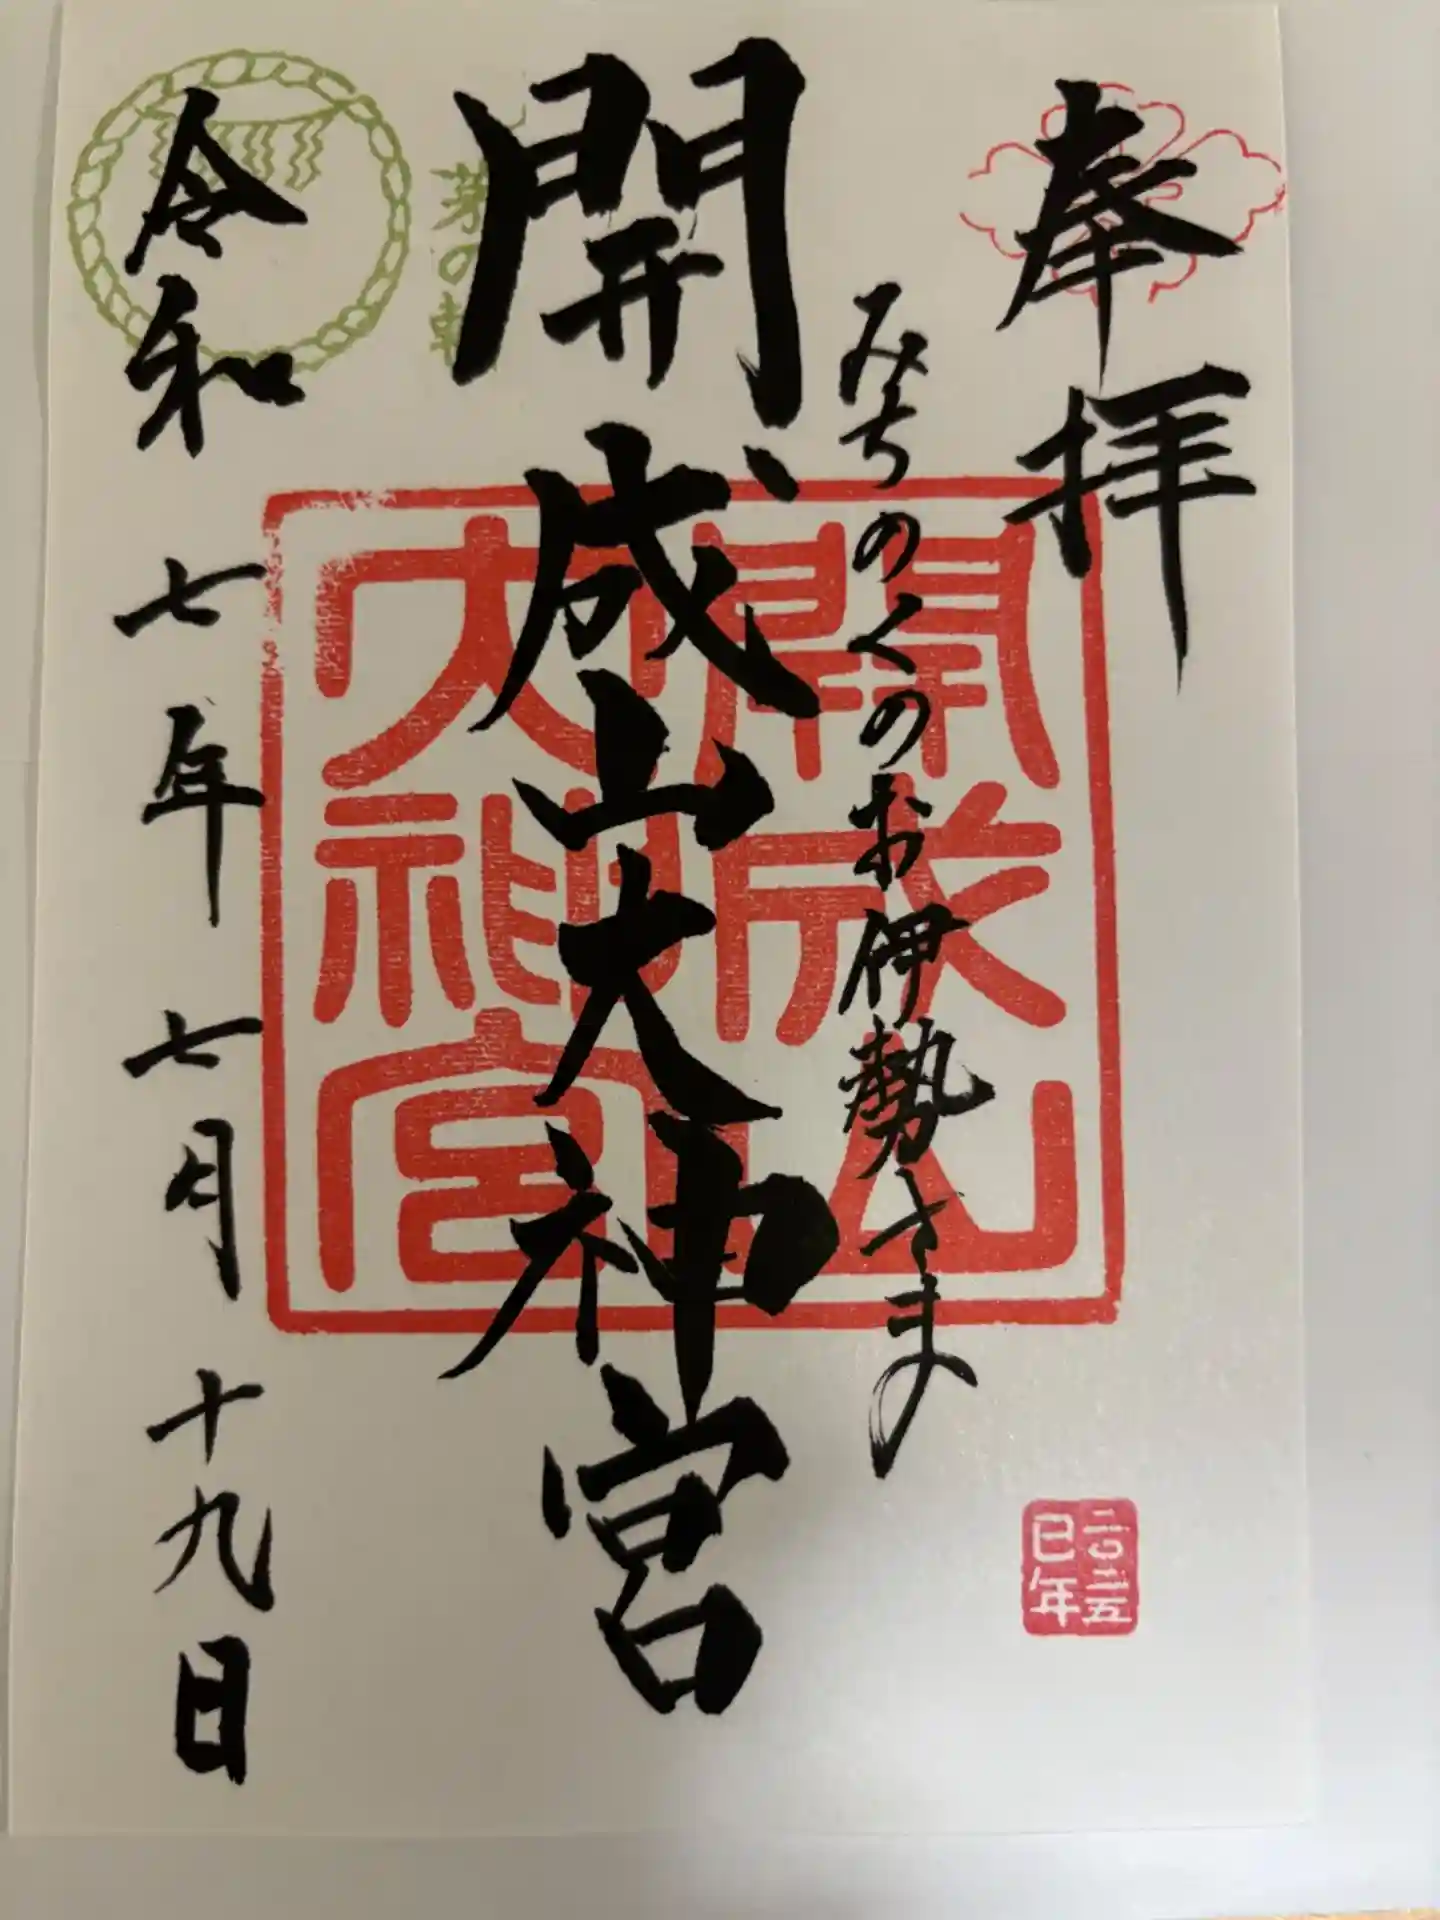 奉拝
みちのくのお伊勢さま
開成山大神宮
令和七年七月十九日
開成山
大神宮
茅の輪
二〇二五
巳年